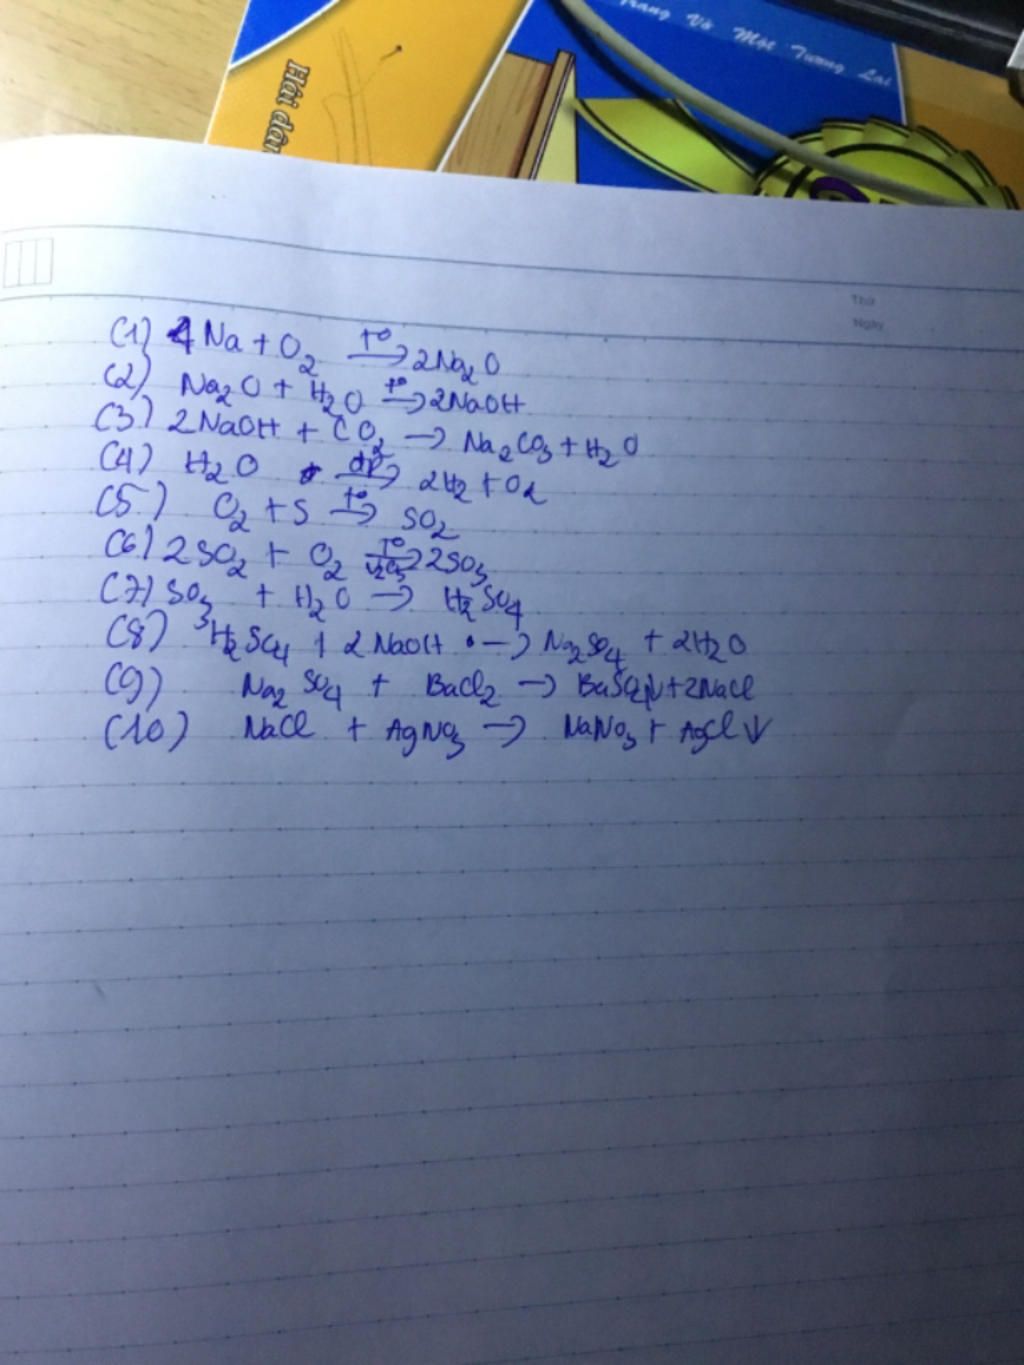 Trang Vở Một Tương Lai
Hải
Thứ
Ngày
(1) 4Na + O₂ t° → 2Na₂O
(2) Na₂O + H₂O t° → 2NaOH
(3) 2NaOH + CO₂ → Na₂CO₃ + H₂O
(4) H₂O đp → 2H₂ + O₂
(5) O₂ + S t° → SO₂
(6) 2SO₂ + O₂ t° V₂O₅ → 2SO₃
(7) SO₃ + H₂O → H₂SO₄
(8) H₂SO₄ + 2NaOH → Na₂SO₄ + 2H₂O
(9) Na₂SO₄ + BaCl₂ → BaSO₄↓ + 2NaCl
(10) NaCl + AgNO₃ → NaNO₃ + AgCl↓